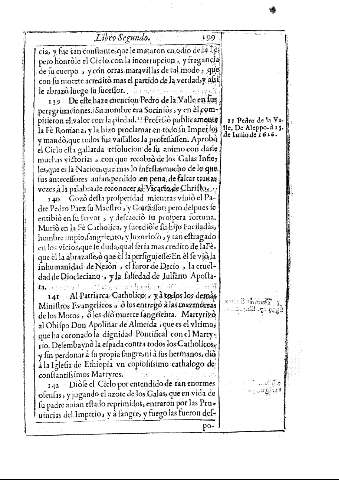 Libro Segundo. 199
cia, y fue tan constante, que le mataron en odio de la Fè,
pero honròle el Cielo con la incorrupcion, y fragancia
de su cuerpo, y con otras maravillas de tal modo, que
con su muerte acreditò mas el partido de la verdad, y assi
le abrazò luego su sucessor.
139 De este haze mencion Pedro de la Valle en sus
peregrinaciones. Su nombre era Socinios, y en èl com-
pitieron el valor con la piedad. Professò publicamente
la Fè Romana, y la hizo proclamar en todo su Imperio,
y mandò, que todos sus vassallos la professassen. Aprobò
el Cielo esta gallarda resolucion de su animo con darle
muchas victorias, con que recobrò de los Galas Infie-
les, que es la Nacion que mas lo infesta, mucho de lo que
sus antecessores avian perdido en pena de faltar tantas
vezes à la palabra de reconocer al Vicario de Christo.
11 Pedro de la Va-
lle, De Aleppo à 15.
de Iunio de 1616.
140 Gozò desta prosperidad mientras viviò el Pa-
dre Pedro Paez su Maestro, y Confessor; pero despues se
entibiò en su fervor, y descaeciò su prospera fortuna.
Muriò en la Fè Catholica, y sucediòle su hijo Faciladàs,
hombre impio, sangriento, y luxurioso, y tan estragado
en los vicios, que le dudo, qual seria mas credito de la Fè,
que èl la abrazasse, ò que èl la persiguiesse. En èl se viò la
inhumanidad de Neròn, el furor de Decio, la cruel-
dad de Diocleciano, y la falsedad de Juliano Aposta-
ta.
141 Al Patriarca Catholico, y à todos los demàs
Ministros Evangelicos, ò los entregò à las mazmorras
de los Moros, ò les diò muerte sangrienta. Martyrizò
al Obispo Don Apolinar de Almeida, que es el vltimo,
que ha coronado la dignidad Pontifical con el Marty-
rio. Desembaynò la espada contra todos los Catholicos,
y sin perdonar à su propia sangre, ni à sus hermanos, diò
à la Iglesia de Etiopia vn copiosissimo cathalogo de
constantissimos Martyres.
142 Diòse el Cielo por entendido de tan enormes
ofensas, y jugando el azote de los Galas, que en vida de
su padre avian estado reprimidos, entraron por las Pro-
uincias del Imperio, y à sangre, y fuego las fueron des-
po-